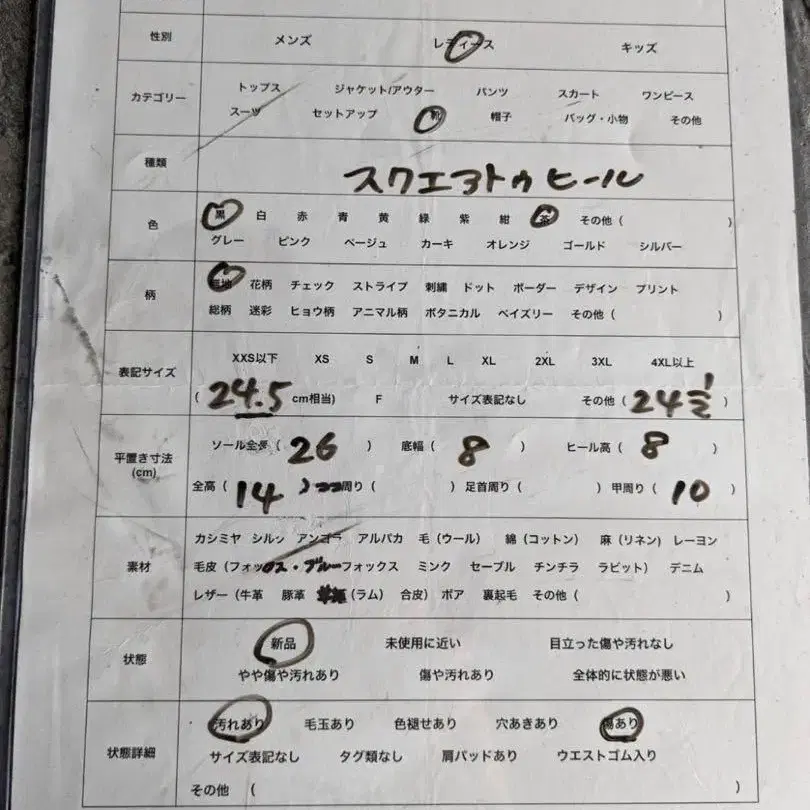 性別 メンズ レディース キッズ
カテゴリー トップス ジャケット/アウター パンツ スカート ワンピース
スーツ セットアップ 靴 帽子 バッグ・小物 その他
種類 スクエアトゥヒール
色 黒 白 赤 青 黄 緑 紫 紺 茶 その他 ( )
グレー ピンク ベージュ カーキ オレンジ ゴールド シルバー
柄 無地 花柄 チェック ストライプ 刺繍 ドット ボーダー デザイン プリント
総柄 迷彩 ヒョウ柄 アニマル柄 ボタニカル ペイズリー その他 ( )
表記サイズ XXS以下 XS S M L XL 2XL 3XL 4XL以上
( 24.5 cm相当) F サイズ表記なし その他 ( 24 1/2 )
平置き寸法 (cm) ソール全長 ( 26 ) 底幅 ( 8 ) ヒール高 ( 8 )
全高 ( 14 ) 周り ( ) 足首周り ( ) 甲周り ( 10 )
素材 カシミヤ シルク アンゴラ アルパカ 毛 (ウール) 綿 (コットン) 麻 (リネン) レーヨン
毛皮 (フォックス・ブルーフォックス ミンク セーブル チンチラ ラビット) デニム
レザー (牛革 豚革 (ラム) 合皮) ボア 裏起毛 その他 (
状態 新品 未使用に近い 目立った傷や汚れなし
やや傷や汚れあり 傷や汚れあり 全体的に状態が悪い
状態詳細 汚れあり 毛玉あり 色褪せあり 穴あきあり 傷あり
サイズ表記なし タグ類なし 肩パッドあり ウエストゴム入り
その他 ( )